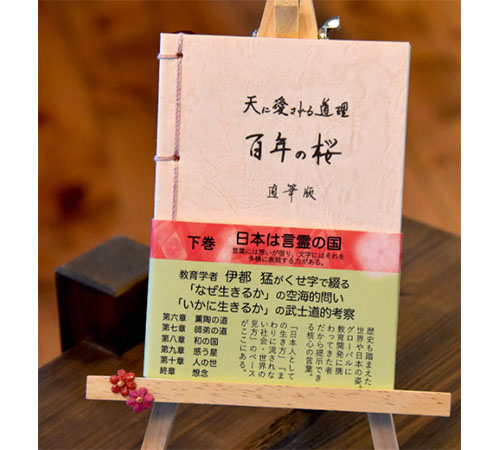 天に愛される道理
百年の桜
直筆版
下巻 日本は言霊の国
言葉には想いが宿り、文字にはそれを
多様に表現する力がある。
教育学者 伊都 猛がくせ字で綴る
「なぜ生きるか」の空海的問い
「いかに生きるか」の武士道的考察
第六章 薫陶の道
第七章 師弟の道
第八章 和の国
第九章 惑う星
第十章 人の世
終章 想念
歴史も踏まえた
世界や日本の姿。
グローバルに
教育開発に携
わってきた者
だから提示でき
る核心の言葉。
「日本人として
の生き方」「ま
わりに流されな
い社会・世界の
見方」のベース
がここにある。